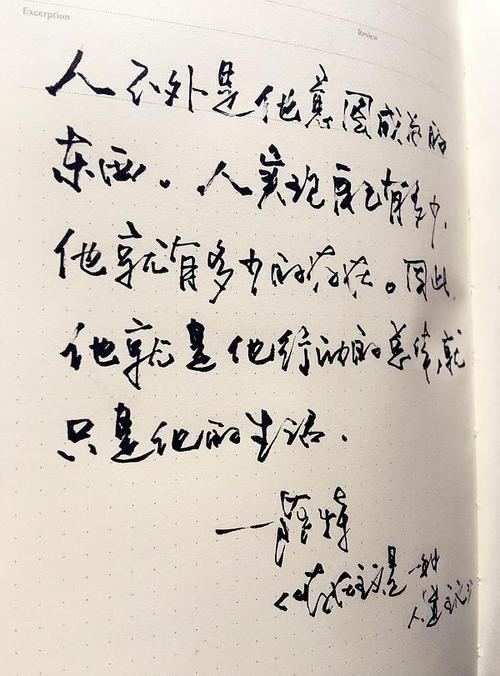 Excerption
Review
人不外是他意图成为的
东西。人实现自己有多少,
他就有多少的存在。因此,
他就是他行动的总体,就
只是他的生活.
——萨特
《存在主义是一种
人道主义》